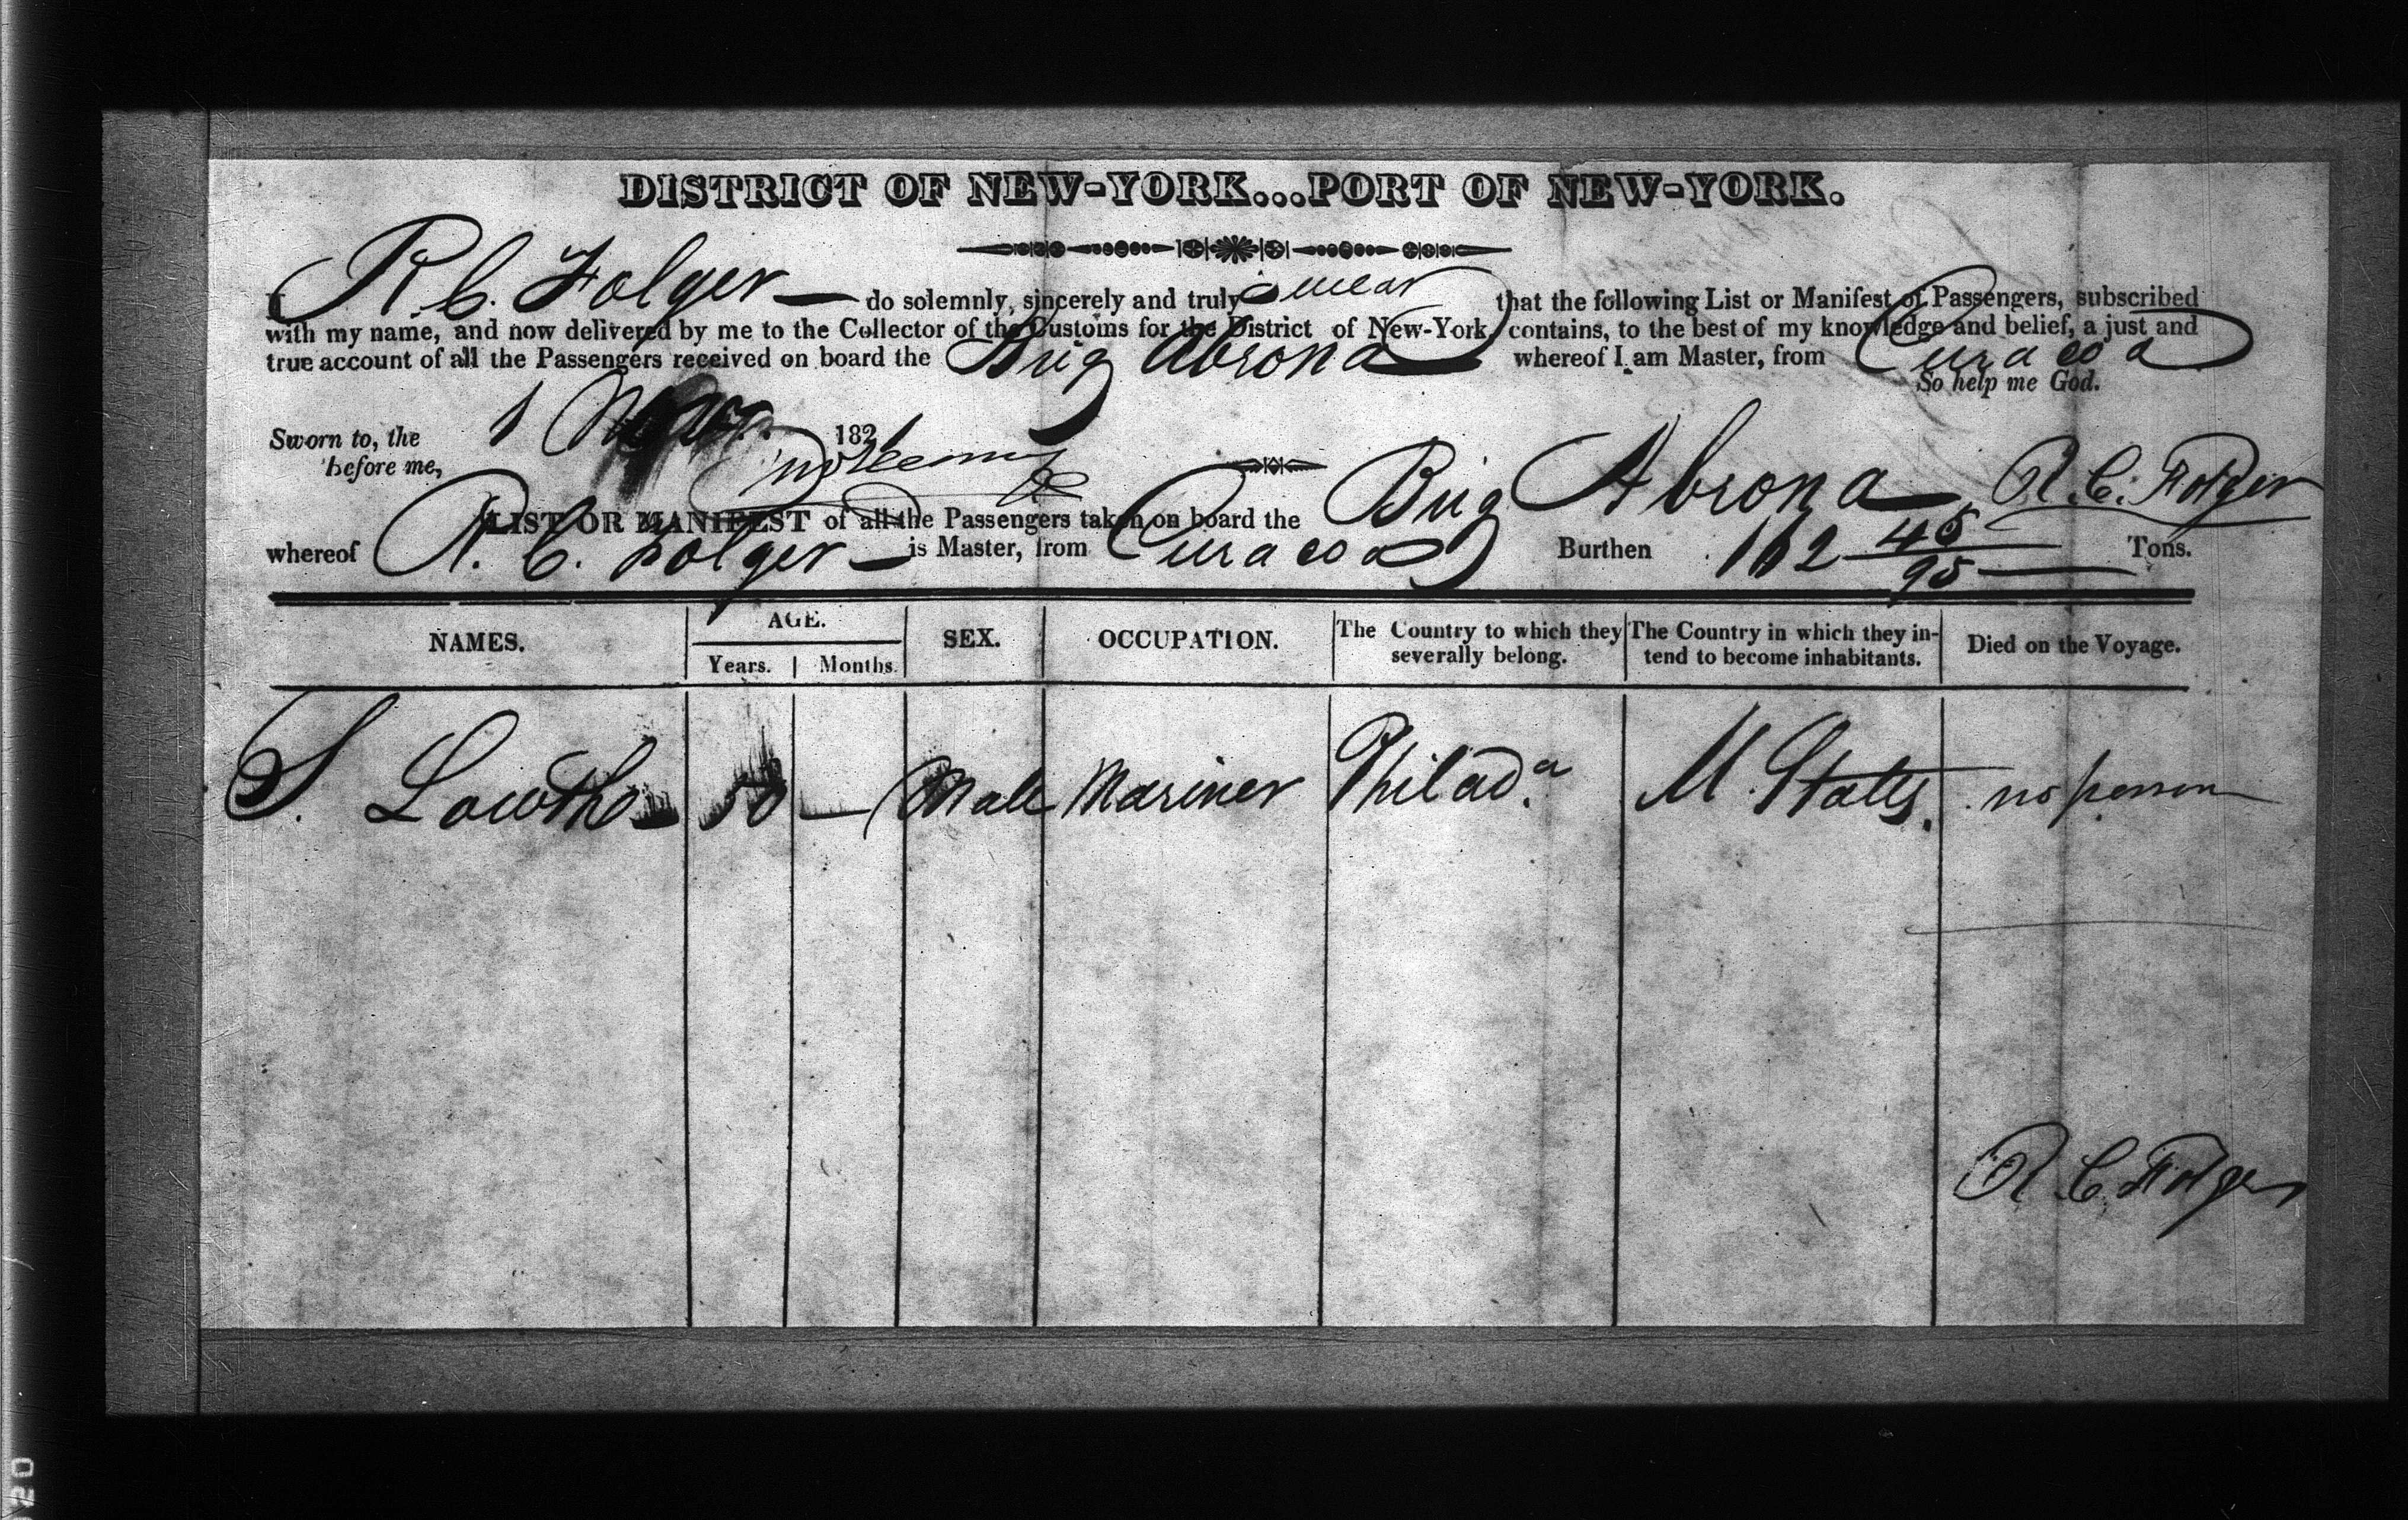 DISTRICT OF NEW-YORK...PORT OF NEW-YORK.
I R. C. Folger do solemnly, sincerely and truly swear that the following List or Manifest of Passengers, subscribed
with my name, and now delivered by me to the Collector of the Customs for the District of New-York, contains, to the best of my knowledge and belief, a just and
true account of all the Passengers received on board the Brig Abrona whereof I am Master, from Curacoa
So help me God.
Sworn to, the 1 1821
before me,
R. C. Folger
LIST OR MANIFEST of all the Passengers taken on board the Brig Abrona
whereof R. C. Folger is Master, from Curacoa Burthen 162 45/95 Tons.
NAMES. AGE. SEX. OCCUPATION. The Country to which they severally belong. The Country in which they intend to become inhabitants. Died on the Voyage.
Years. Months.
S. Lowth 50 — Male Mariner Philad.a U. States. no person
R. C. Folger